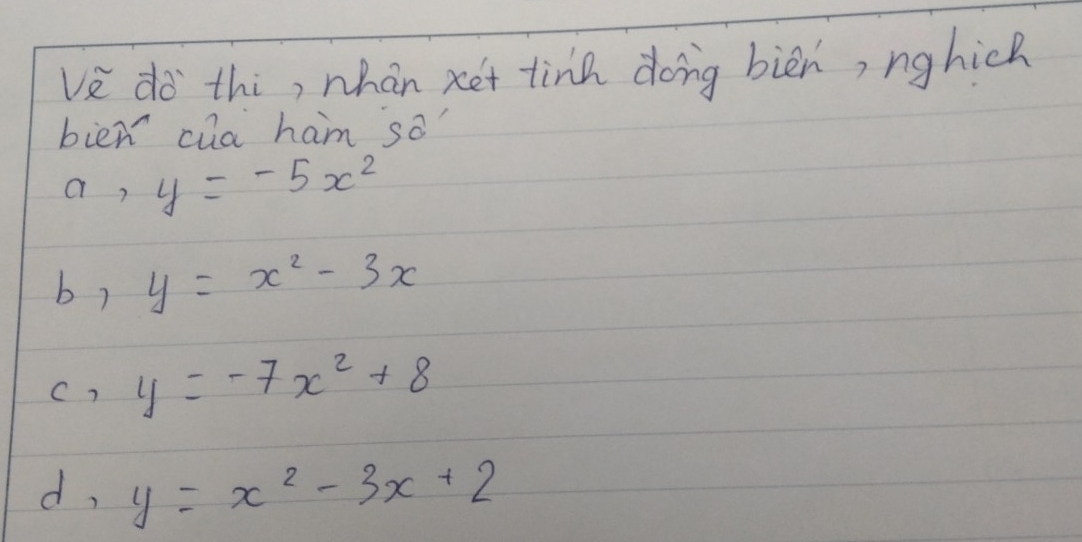 Vẽ đồ thị, nhận xét tính đồng biến, nghịch
biến của hàm số
a, y = -5x²
b, y = x² - 3x
c, y = -7x² + 8
d, y = x² - 3x + 2